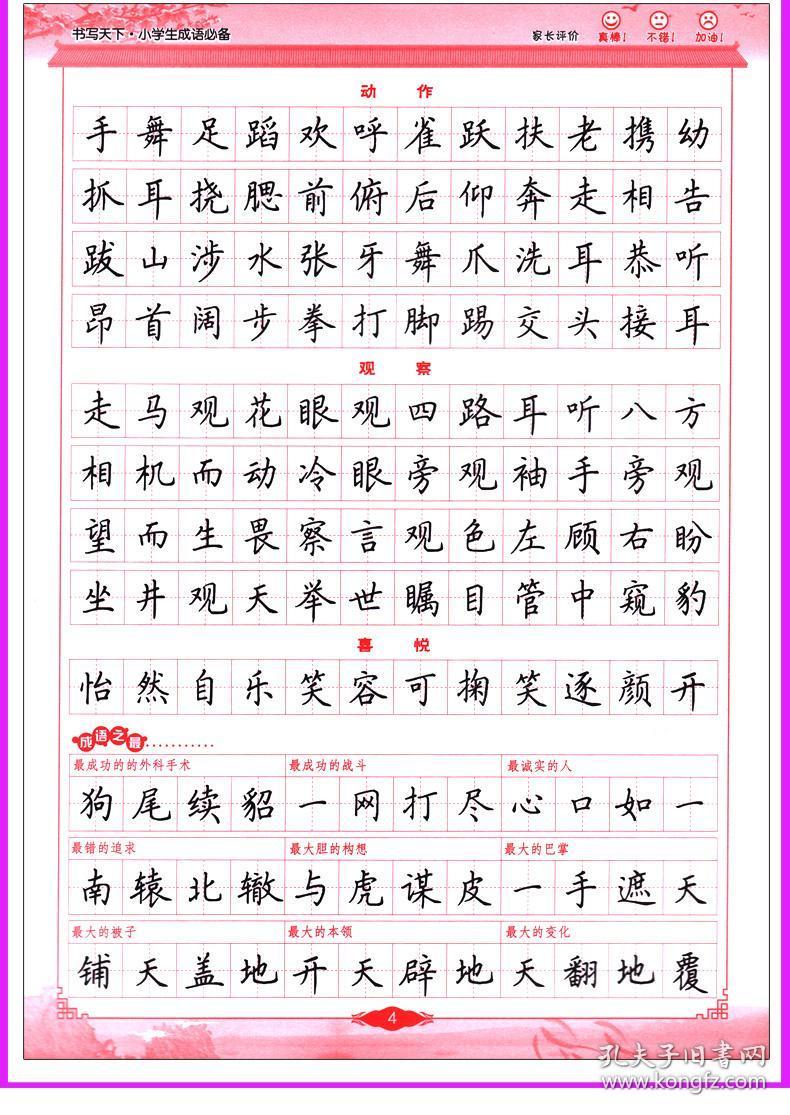 书写天下·小学生成语必备 家长评价 真棒! 不错! 加油!
动 作
手舞足蹈欢呼雀跃扶老携幼
抓耳挠腮前俯后仰奔走相告
跋山涉水张牙舞爪洗耳恭听
昂首阔步拳打脚踢交头接耳
观 察
走马观花眼观四路耳听八方
相机而动冷眼旁观袖手旁观
望而生畏察言观色左顾右盼
坐井观天举世瞩目管中窥豹
喜 悦
怡然自乐笑容可掬笑逐颜开
成语之最...........
最成功的的外科手术 最成功的战斗 最诚实的人
狗尾续貂一网打尽心口如一
最错的追求 最大胆的构想 最大的巴掌
南辕北辙与虎谋皮一手遮天
最大的被子 最大的本领 最大的变化
铺天盖地开天辟地天翻地覆
4
孔夫子旧书网
www.kongfz.com